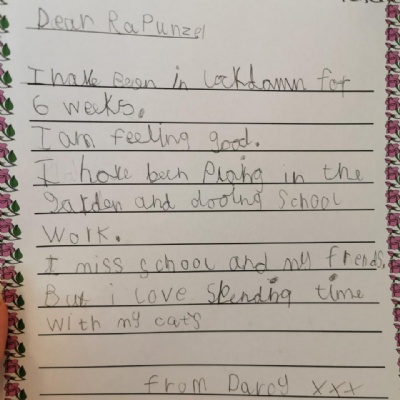 Dear RaPunzel
I have been in lockdown for
6 weeks.
I am feeling good.
I have been Plaing in the
garden and dooing School
Work.
I miss school and my friends.
But i love Spending time
With my cats
from Darcy xxx